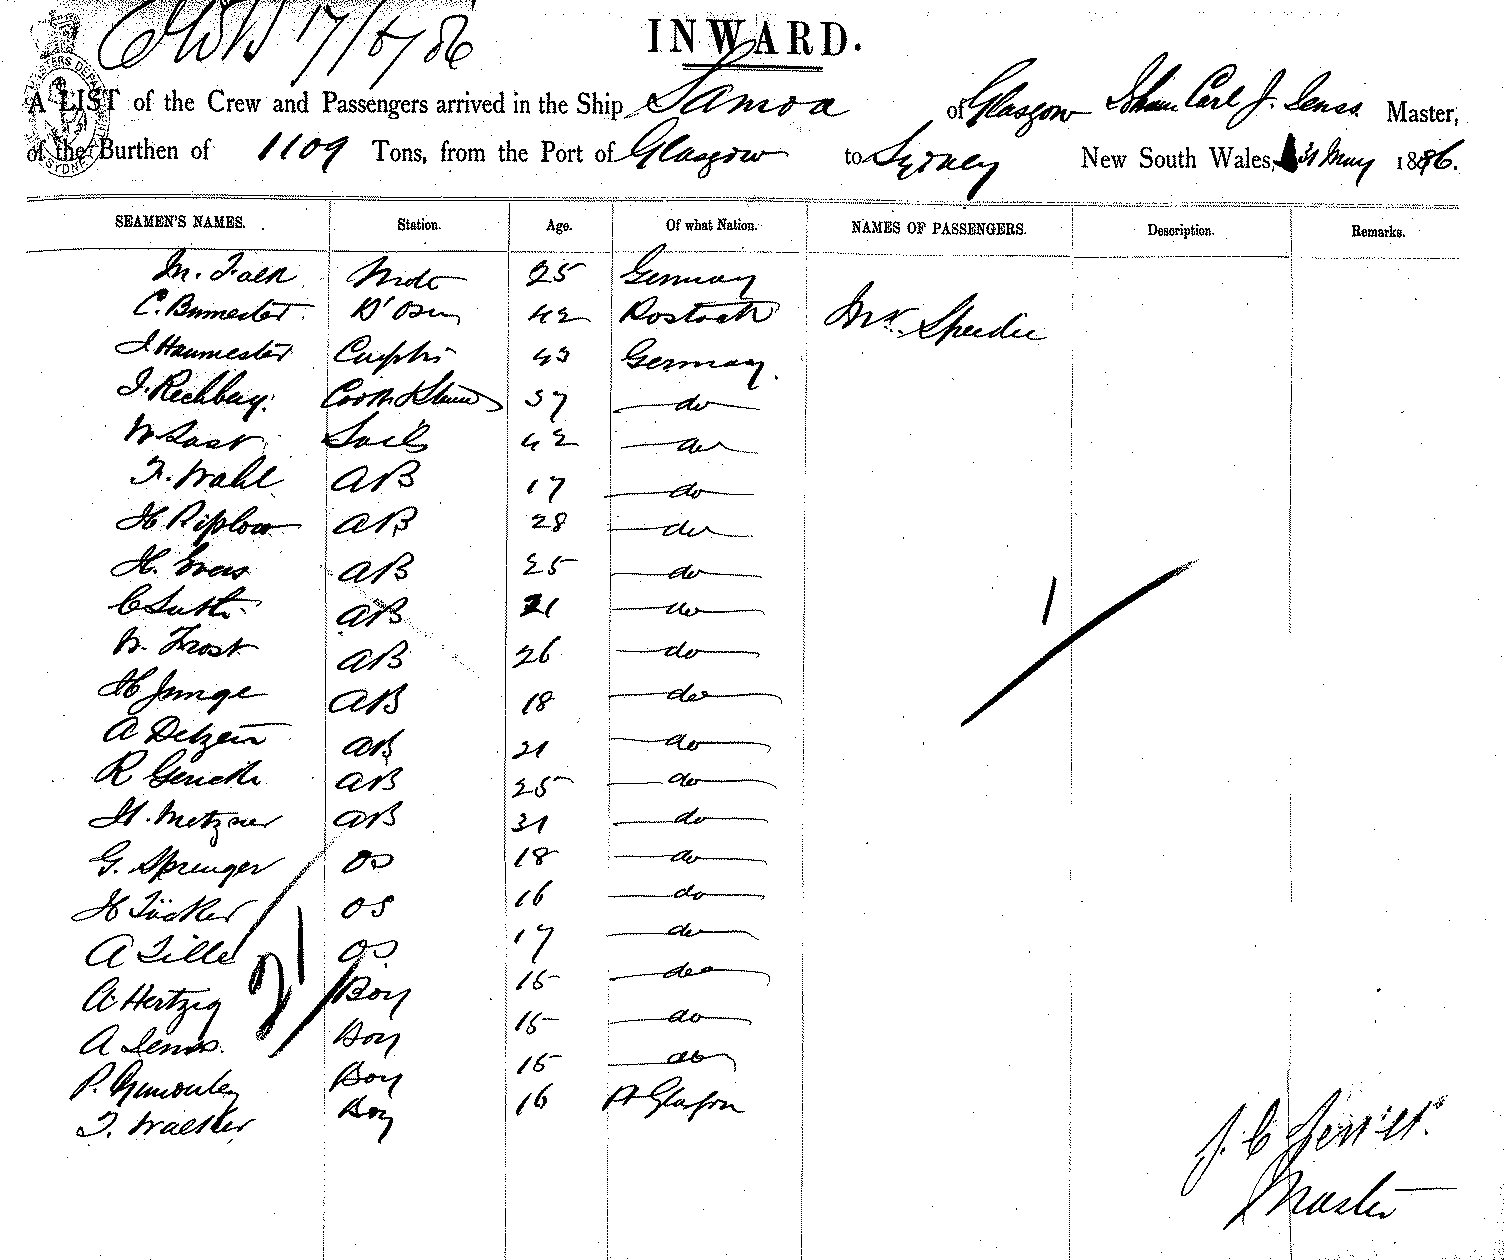 17/6/86
INWARD.
A LIST of the Crew and Passengers arrived in the Ship Samoa of Glasgow Carl J. Master,
of the Burthen of 1109 Tons, from the Port of Glasgow to Sydney New South Wales, 31 May 1886.
SEAMEN'S NAMES. Station. Age. Of what Nation. NAMES OF PASSENGERS. Description. Remarks.
M. Falk Mate 25 Germany
C. Bumester 42 Rostock Mr. Speedie
J. Haumester 43 Germany.
J. Rechberg. Cook & 37 do
W Last Sails 42 do
F. Wahl AB 17 do
H Piplow AB 28 do
H. Evers AB 25 do
C Luth AB 21 do
W. Frost AB 26 do
H Junge AB 18 do
A AB 21 do
R AB 25 do
H. Metzner AB 31 do
G. Sprenger OS 18 do
H Tücker OS 16 do
A Tille OS 17 do
A Hertzig Boy 15 do
A Boy 15 do
P. Boy 15 do
T. Walther Boy 16
21
1
J. C
Master